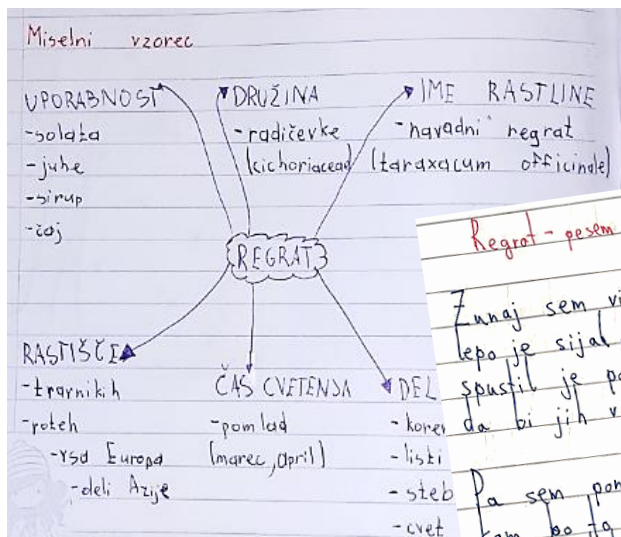 Miselni vzorec
UPORABNOST
-solata
-juhe
-sirup
-čaj
DRUŽINA
-radičevke
(cichoriaceae)
IME RASTLINE
-navadni regrat
(taraxacum officinale)
REGRAT
RASTIŠČE
-travnikih
-poteh
-vsa Europa
-deli Azije
ČAS CVETENJA
-pomlad
(marec, april)
DEL
-koren
-listi
-steb
-cvet
Regrat - pesem
Zunaj sem vi
lepo je sijal
spustil je po
da bi jih v
Pa sem pon